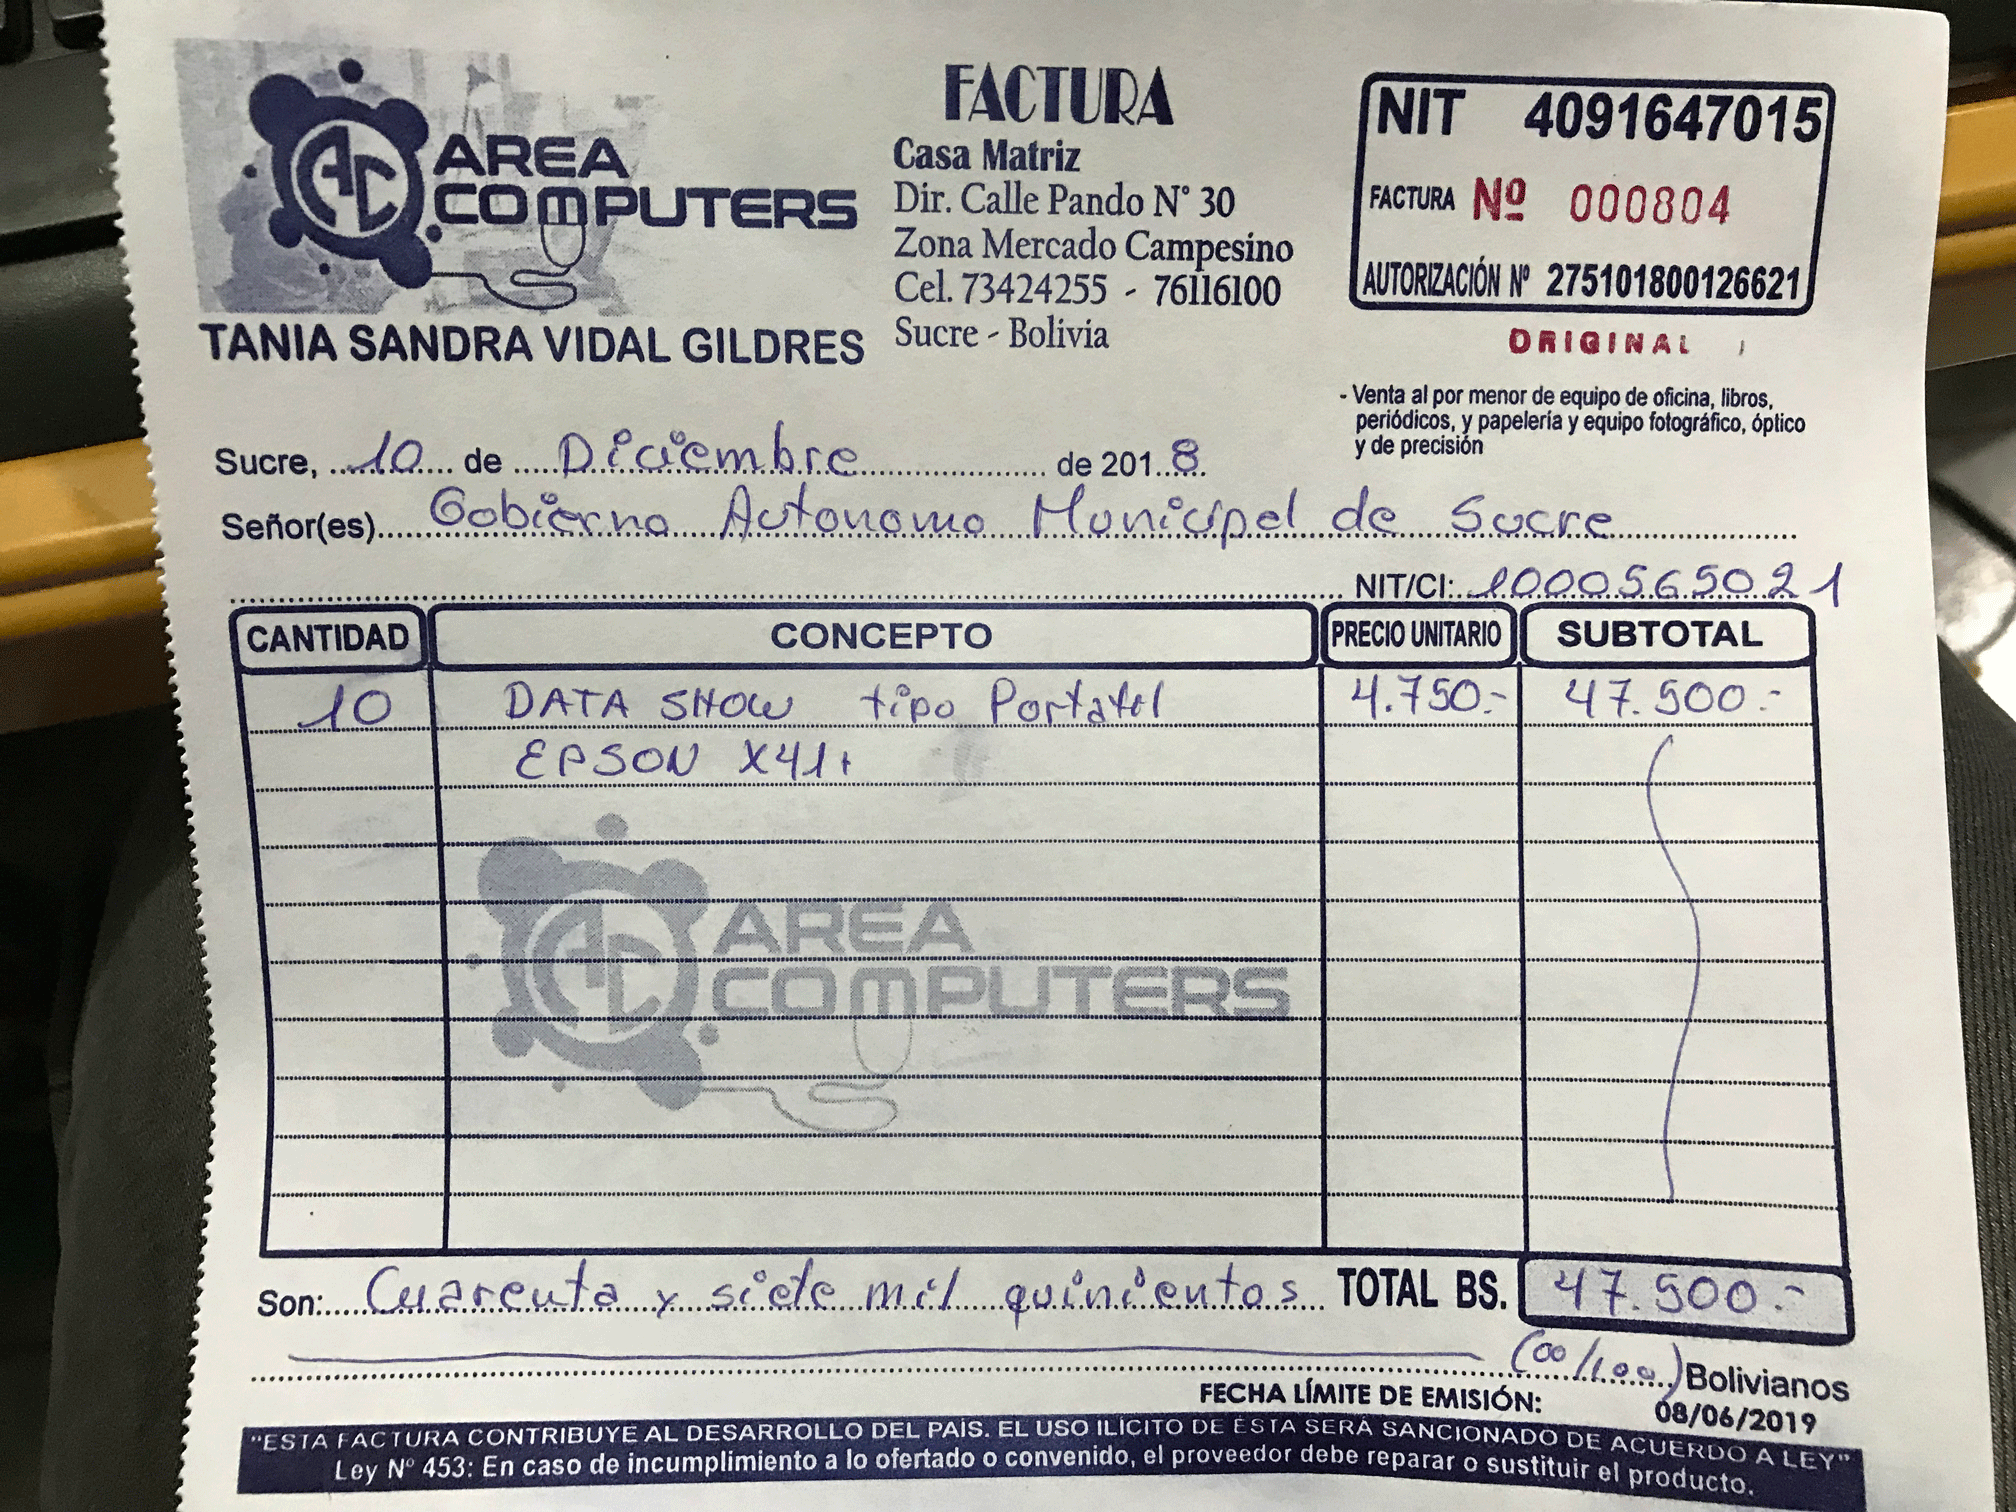 AREA
COMPUTERS
TANIA SANDRA VIDAL GILDRES
FACTURA
Casa Matriz
Dir. Calle Pando N° 30
Zona Mercado Campesino
Cel. 73424255 - 76116100
Sucre - Bolivia
NIT 4091647015
FACTURA Nº 000804
AUTORIZACIÓN Nº 275101800126621
ORIGINAL
- Venta al por menor de equipo de oficina, libros,
periódicos, y papelería y equipo fotográfico, óptico
y de precisión
Sucre, 10 de Diciembre de 2018
Señor(es) Gobierno Autonomo Municipel de Sucre
NIT/CI: 1000565021
CANTIDAD CONCEPTO PRECIO UNITARIO SUBTOTAL
10 DATA SHOW tipo Portatil 4.750.- 47.500.-
EPSON X41+
AREA
COMPUTERS
Son: Cuarenta y siete mil quinientos TOTAL BS. 47.500.-
00/100 Bolivianos
FECHA LÍMITE DE EMISIÓN:
08/06/2019
"ESTA FACTURA CONTRIBUYE AL DESARROLLO DEL PAÍS. EL USO ILÍCITO DE ÉSTA SERÁ SANCIONADO DE ACUERDO A LEY"
Ley Nº 453: En caso de incumplimiento a lo ofertado o convenido, el proveedor debe reparar o sustituir el producto.